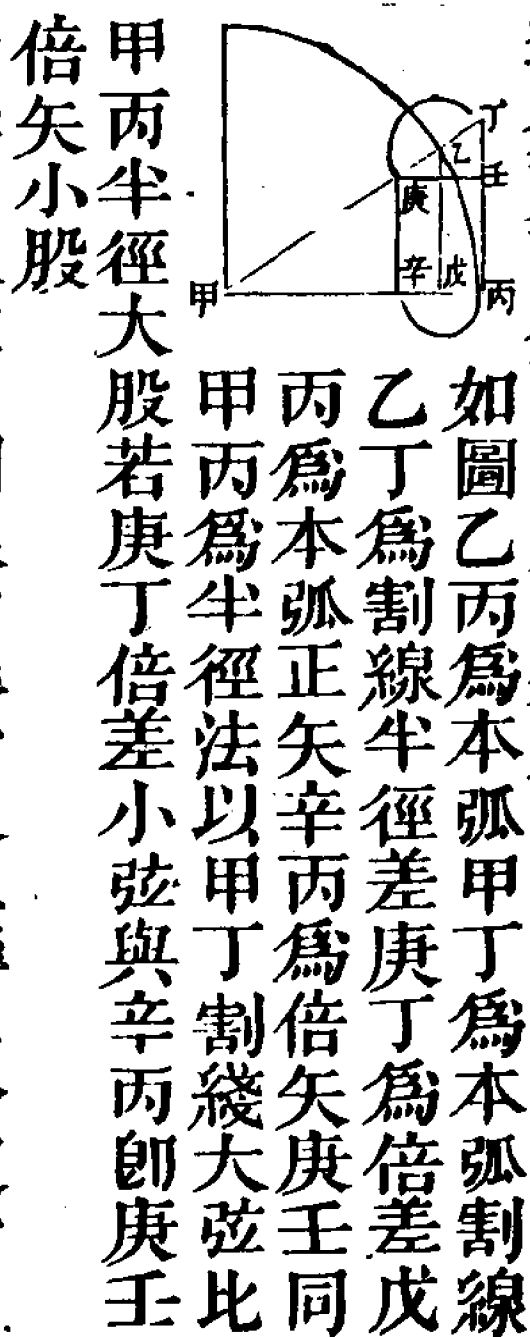 丁
乙
壬
庚
辛
戊
甲
丙
如圖乙丙爲本弧甲丁爲本弧割線
乙丁爲割線半徑差庚丁爲倍差戊
丙爲本弧正矢辛丙爲倍矢庚壬同
甲丙爲半徑法以甲丁割綫大弦比
甲丙半徑大股若庚丁倍差小弦與辛丙卽庚壬
倍矢小股